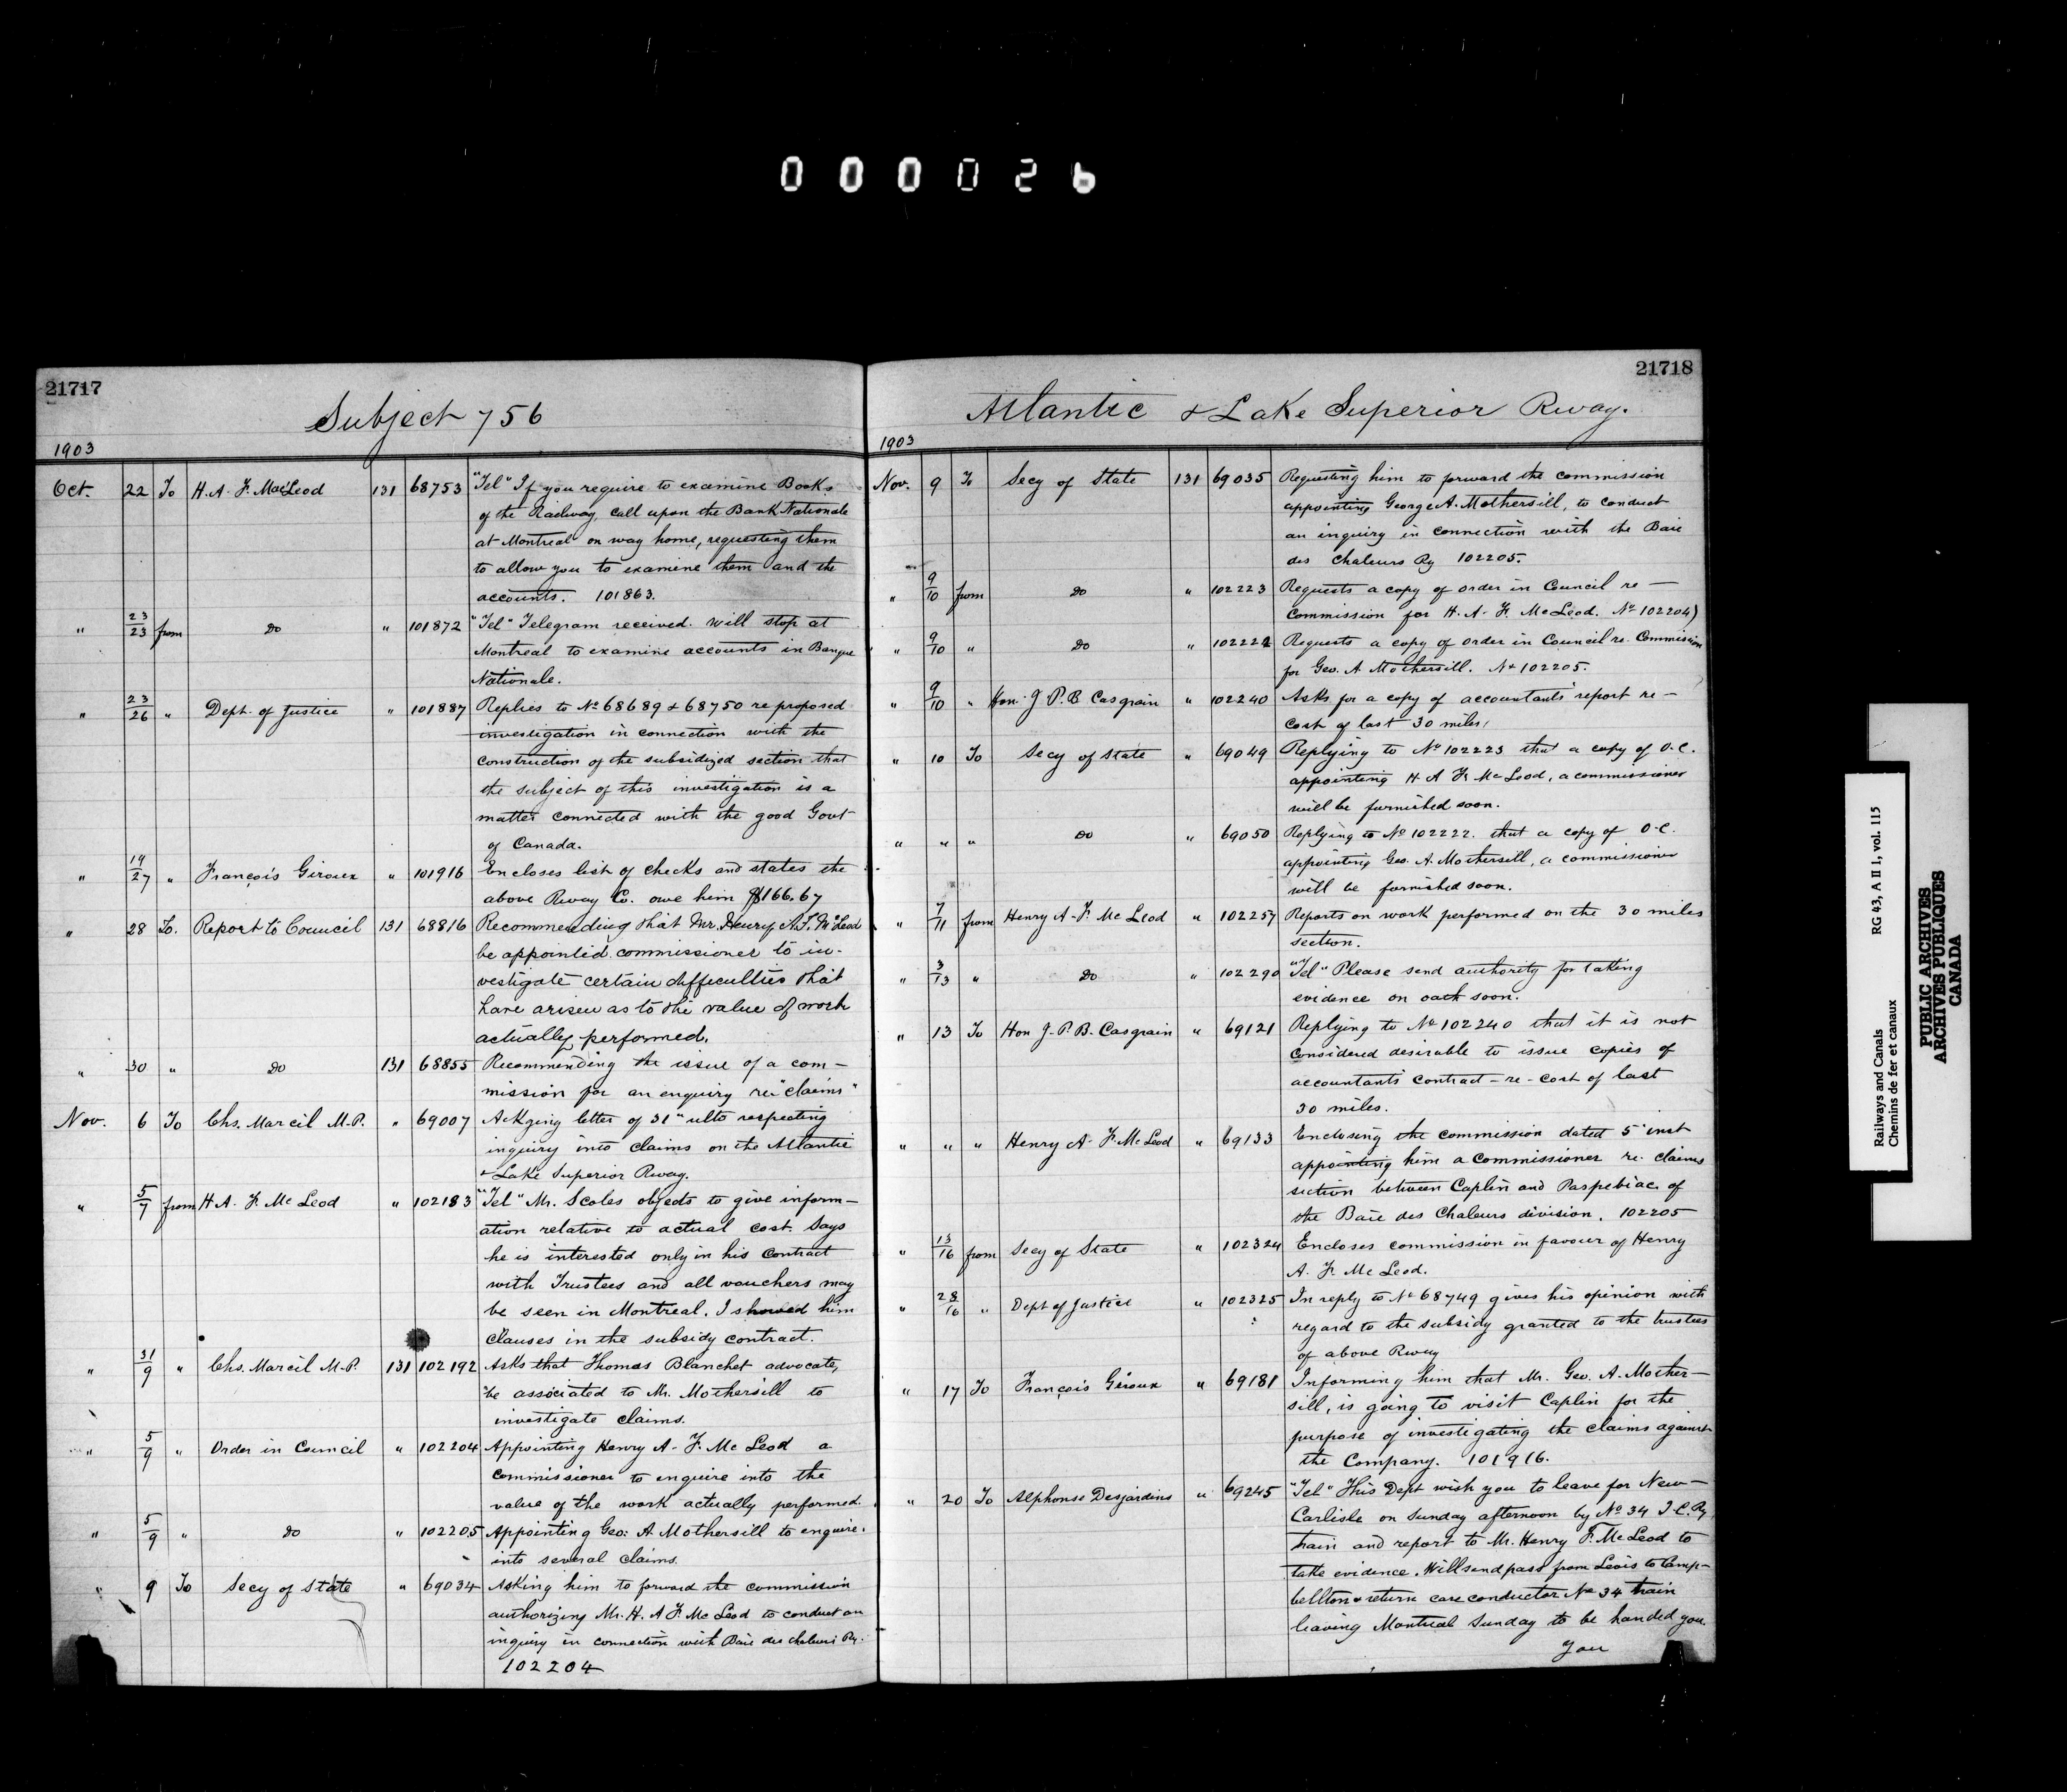 000026
21717
Subject 756
1903
Oct. 22 To H. A. F. MacLeod 131 68753 "Tel" If you require to examine Books
of the Railway, call upon the Bank Nationale
at Montreal on way home, requesting them
to allow you to examine them and the
accounts. 101863.
" 23/23 from Do " 101872 "Tel" Telegram received. Will stop at
Montreal to examine accounts in Banque
Nationale.
" 23/26 " Dept. of Justice " 101887 Replies to No 68689 & 68750 re proposed
investigation in connection with the
construction of the subsidized section that
the subject of this investigation is a
matter connected with the good Govt
of Canada.
" 19/27 " François Giroux " 101916 Encloses list of checks and states the
above Rway Co. owe him $166.67
" 28 To. Report to Council 131 68816 Recommending that Mr. Henry A. F. McLeod
be appointed commissioner to in-
vestigate certain difficulties that
have arisen as to the value of work
actually performed.
" 30 " Do 131 68855 Recommending the issue of a com-
mission for an enquiry re "claims"
Nov. 6 To Chs. Marcil M.P. " 69007 Ackging letter of 31" ulto respecting
inquiry into claims on the Atlantic
& Lake Superior Rway.
" 5/7 from H. A. F. McLeod " 102183 "Tel" Mr. Scoles objects to give inform-
ation relative to actual cost. Says
he is interested only in his contract
with Trustees and all vouchers may
be seen in Montreal. I showed him
clauses in the subsidy contract.
" 31/9 " Chs. Marcil M.P. 131 102192 Asks that Thomas Blanchet advocate,
be associated to Mr. Mothersill to
investigate claims.
" 5/9 " Order in Council " 102204 Appointing Henry A. F. McLeod a
commissioner to enquire into the
value of the work actually performed.
" 5/9 " Do " 102205 Appointing Geo: A Mothersill to enquire.
into several claims.
" 9 To Secy of State " 69034 Asking him to forward the commission
authorizing Mr. H. A F. McLeod to conduct an
inquiry in connection with Baie des chaleurs Ry.
102204
21718
Atlantic & Lake Superior Rway.
1903
Nov. 9 To Secy of State 131 69035 Requesting him to forward the commission
appointing George A. Mothersill, to conduct
an inquiry in connection with the Baie
des Chaleurs Ry 102205.
" 9/10 from Do " 102223 Requests a copy of order in Council re —
Commission for H. A. F. McLeod. No 102204)
" 9/10 " Do " 102222 Requests a copy of order in Council re. Commission
for Geo. A Mothersill. No 102205.
" 9/10 " Hon. J. P. B Casgrain " 102240 Asks for a copy of accountants report re —
Cost of last 30 miles.
" 10 To Secy of State " 69049 Replying to No 102223 that a copy of O.C.
appointing H A F. McLeod, a commissioner
will be furnished soon.
" " " Do " 69050 Replying to No 102222. that a copy of O.C.
appointing Geo. A. Mothersill, a commissioner
will be furnished soon.
" 7/11 from Henry A. F. McLeod " 102257 Reports on work performed on the 30 miles
section.
" 3/13 " Do " 102290 "Tel" Please send authority for taking
evidence on oath soon.
" 13 To Hon J. P. B. Casgrain " 69121 Replying to No 102240 that it is not
considered desirable to issue copies of
accountants contract — re — cost of last
30 miles.
" " " Henry A. F. McLeod " 69133 Enclosing the commission dated 5" inst
appointing him a commissioner re. claims
section between Caplin and Paspebiac of
the Baie des Chaleurs division. 102205
" 13/16 from Secy of State " 102324 Encloses commission in favour of Henry
A. F. McLeod.
" 28/16 " Dept of Justice " 102325 In reply to No 68749 gives his opinion with
regard to the subsidy granted to the trustees
of above Rway
" 17 To François Giroux " 69181 Informing him that Mr. Geo. A. Mother-
sill, is going to visit Caplin for the
purpose of investigating the claims against
the Company. 101916.
" 20 To Alphonse Desjardins " 69245 "Tel" This Dept wish you to leave for New —
Carlisle on Sunday afternoon by No 34 I.C.Ry
train and report to Mr. Henry F. McLeod to
take evidence. Will send pass from Levis to Camp-
bellton & return care conductor No 34 train
leaving Montreal Sunday to be handed you.
You
Railways and Canals RG 43, A II 1, vol. 115
Chemins de fer et canaux
PUBLIC ARCHIVES
ARCHIVES PUBLIQUES
CANADA